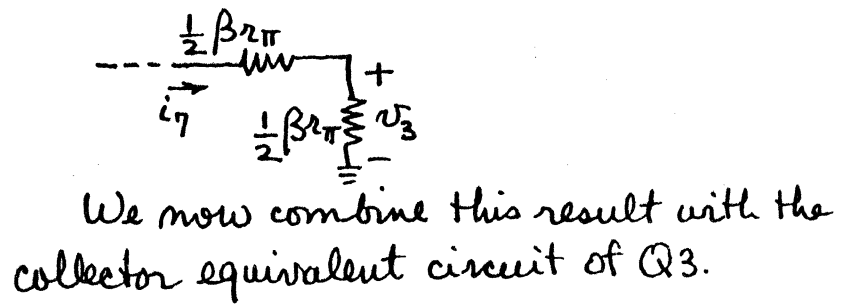 ½βrπ
+
i7
½βrπ
v3
−
We now combine this result with the
collector equivalent circuit of Q3.